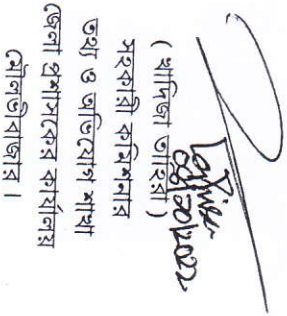 (খাদিজা তাহেরা)
সহকারী কমিশনার
তথ্য ও অভিযোগ শাখা
জেলা প্রশাসকের কার্যালয়
মৌলভীবাজার।